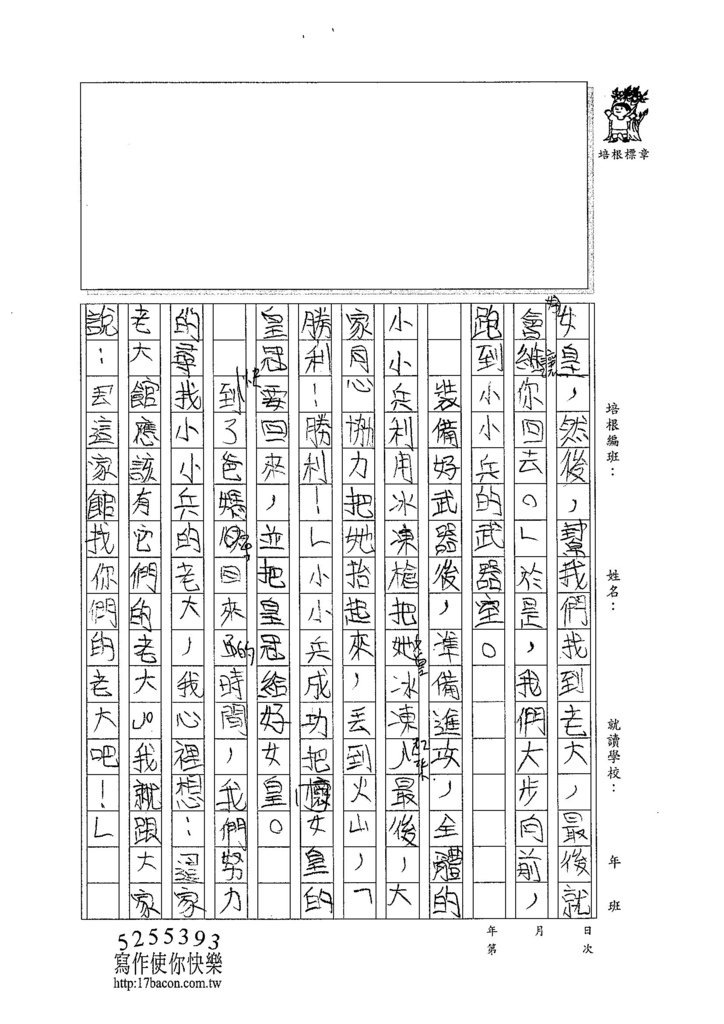 培根標章
培根編班：
姓名：
就讀學校：
年
班
日
次
月
年
第
女皇，然後，幫我們找到老大，最後就
會讓你回去。」於是，我們大步向前，
跑到小小兵的武器室。
裝備好武器後，準備進攻，全體的
小小兵利用冰凍槍把她冰凍起來，最後，大
家同心協力把她抬起來，丟到火山，「
勝利！勝利！」小小兵成功把壞女皇的
皇冠要回來，並把皇冠給好女皇。
到了爸媽快回來的時間，我們努力
的尋找小小兵的老大，我心裡想：這家
老大館應該有它們的老大」我就跟大家
說：丟這家館找你們的老大吧！」
5255393
寫作使你快樂
http:17bacon.com.tw